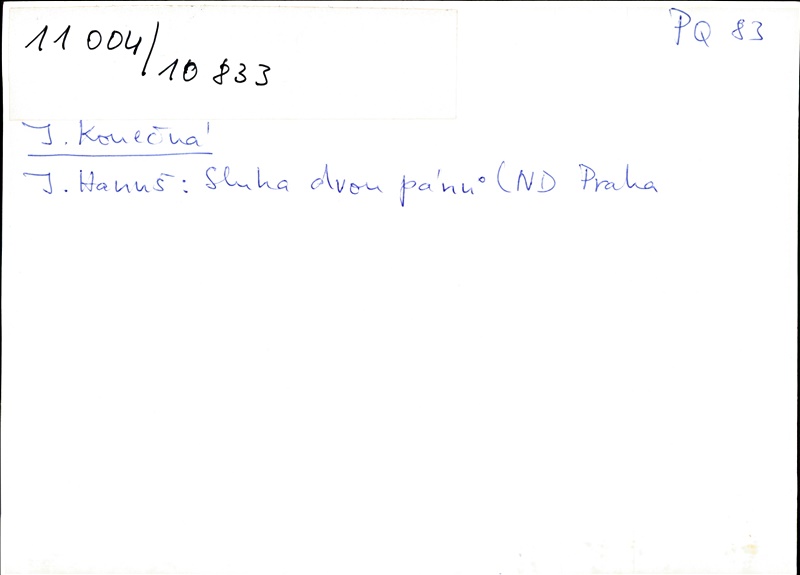 11 004/10 833
PQ 83
J. Konečná
J. Hanuš: Sluha dvou pánů (ND Praha